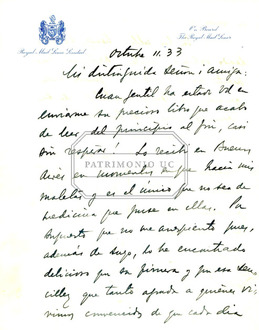 Royal Mail Lines Limited
On Board
The Royal Mail Liner
Octubre 11. 33
Mi distinguida Señora i Amiga:
Cuan gentil ha estado Vd en
enviarme su precioso libro que acabo
de leer del principio al fin, casi
sin respirar! Lo recibí en Buenos
Aires en momentos que hacía mis
maletas y es el único que no sea de
medicina que puse en ellas. Por
supuesto que no me arrepiento pues,
además de suyo, lo he encontrado
delicioso por su finura y por esa senc-
illez que tanto agrada a quienes vi-
vimos convencidos de que cada día
PATRIMONIO UC